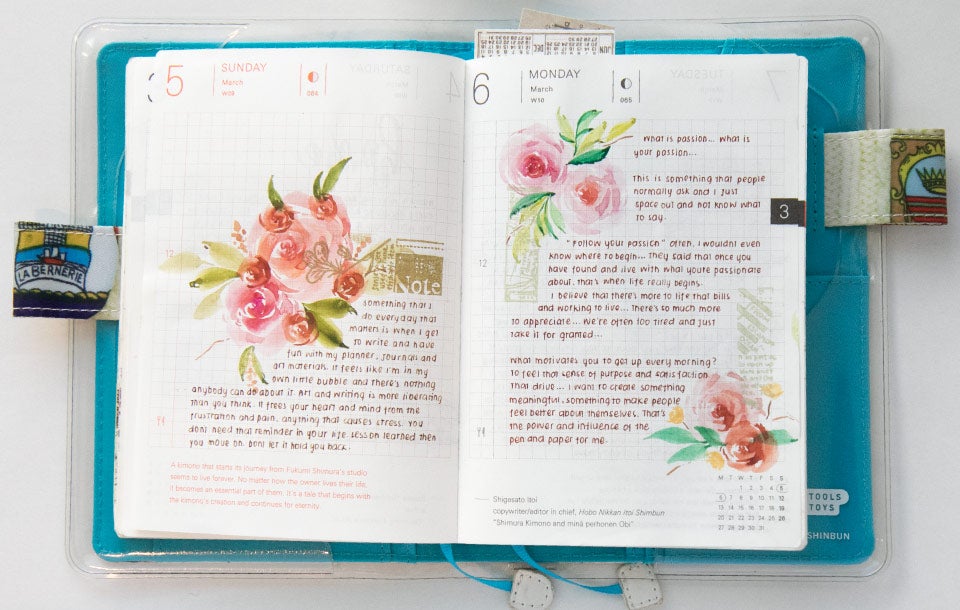 5
SUNDAY
March
W09
064
Note
something that I
do everyday that
matters is when I get
to write and have
fun with my planner, journals and
art materials. It feels like I'm in my
own little bubble and there's nothing
anybody can do about it. Art and writing is more liberating
than you think. It frees your heart and mind from the
frustration and pain. anything that causes stress. You
dont need that reminder in your life. Lesson learned then
you move on. Dont let it hold you back.
12
A kimono that starts its journey from Fukumi Shimura's studio
seems to live forever. No matter how the owner lives their life,
it becomes an essential part of them. It's a tale that begins with
the kimono's creation and continues for eternity.
6
MONDAY
March
W10
065
What is passion... what is
your passion...
This is something that people
normally ask and I just
space out and not know what
to say.
"Follow your passion" often, I wouldnt even
know where to begin... They said that once you
have found and live with what you're passionate
about. that's when life really begins.
I believe that there's more to life that bills
and working to live... There's so much more
to appreciate... We're often too tired and just
take it for granted...
What motivates you to get up every morning?
To feel that sense of purpose and satisfaction
That drive... I want to create something
meaningful. something to make people
feel better about themselves. That's
the power and influence of the
pen and paper for me.
12
3
Shigesato Itoi
copywriter/editor in chief, Hobo Nikkan Itoi Shimbun
"Shimura Kimono and minä perhonen Obi"
M T W T F S S
1 2 3 4 5
6 7 8 9 10 11 12
13 14 15 16 17 18 19
20 21 22 23 24 25 26
27 28 29 30 31
LA BERNERIE
JUN
DEC
TOOLS
TOYS
SHINBUN